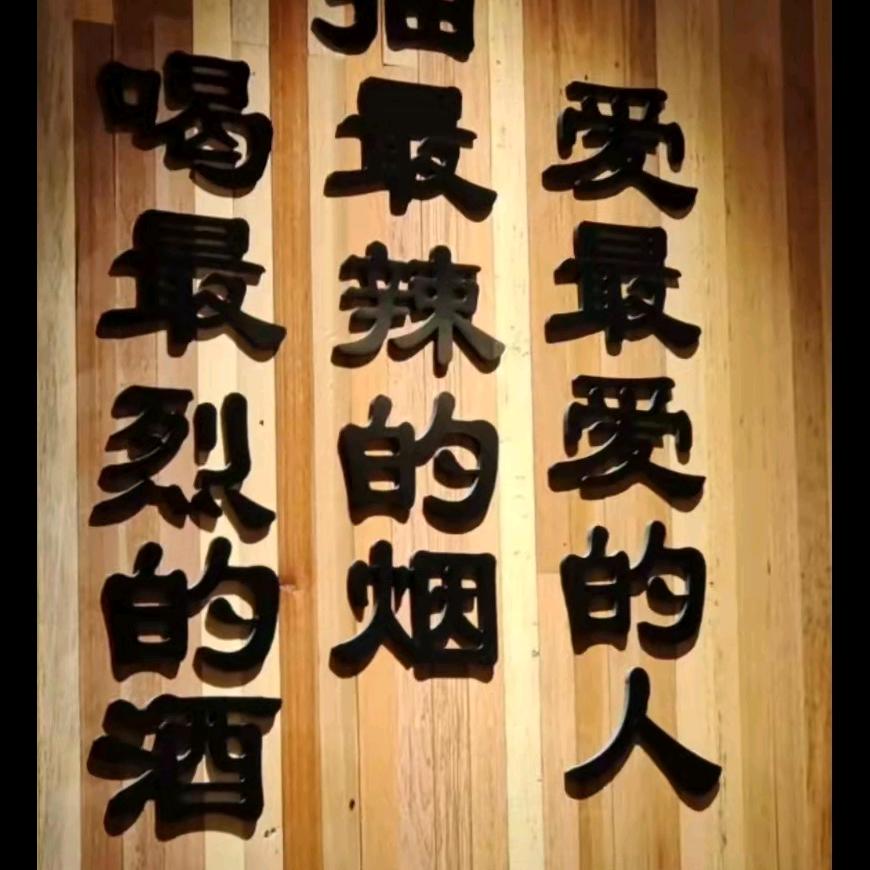 喝最烈的酒
抽最辣的烟
爱最爱的人